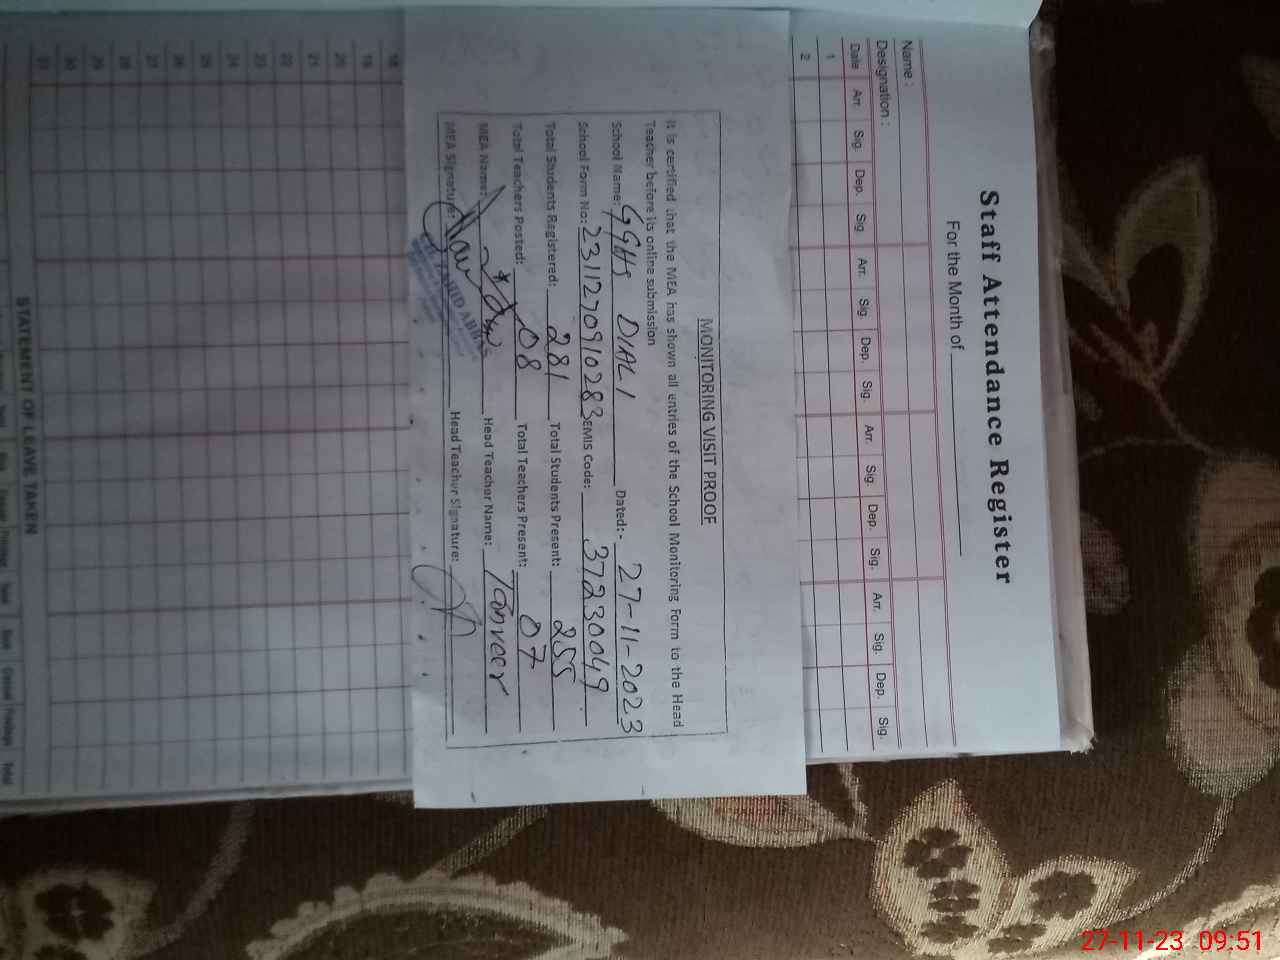 Staff Attendance Register
For the Month of
Name :
Designation :
Date Arr. Sig. Dep. Sig. Arr. Sig. Dep. Sig. Arr. Sig. Dep. Sig. Arr. Sig. Dep. Sig.
1
2
MONITORING VISIT PROOF
It is certified that the MEA has shown all entries of the School Monitoring Form to the Head
Teacher before its online submission
School Name: GGHS DIALI Dated:- 27-11-2023
School Form No: 2311270910283 EMIS Code: 37230049
Total Students Registered: 281 Total Students Present: 255
Total Teachers Posted: 08 Total Teachers Present: 07
MEA Name: Head Teacher Name: Tanveer
MEA Signature: Head Teacher Signature:
18
19
20
21
22
23
24
25
26
27
28
29
30
31
STATEMENT OF LEAVE TAKEN
27-11-23 09:51